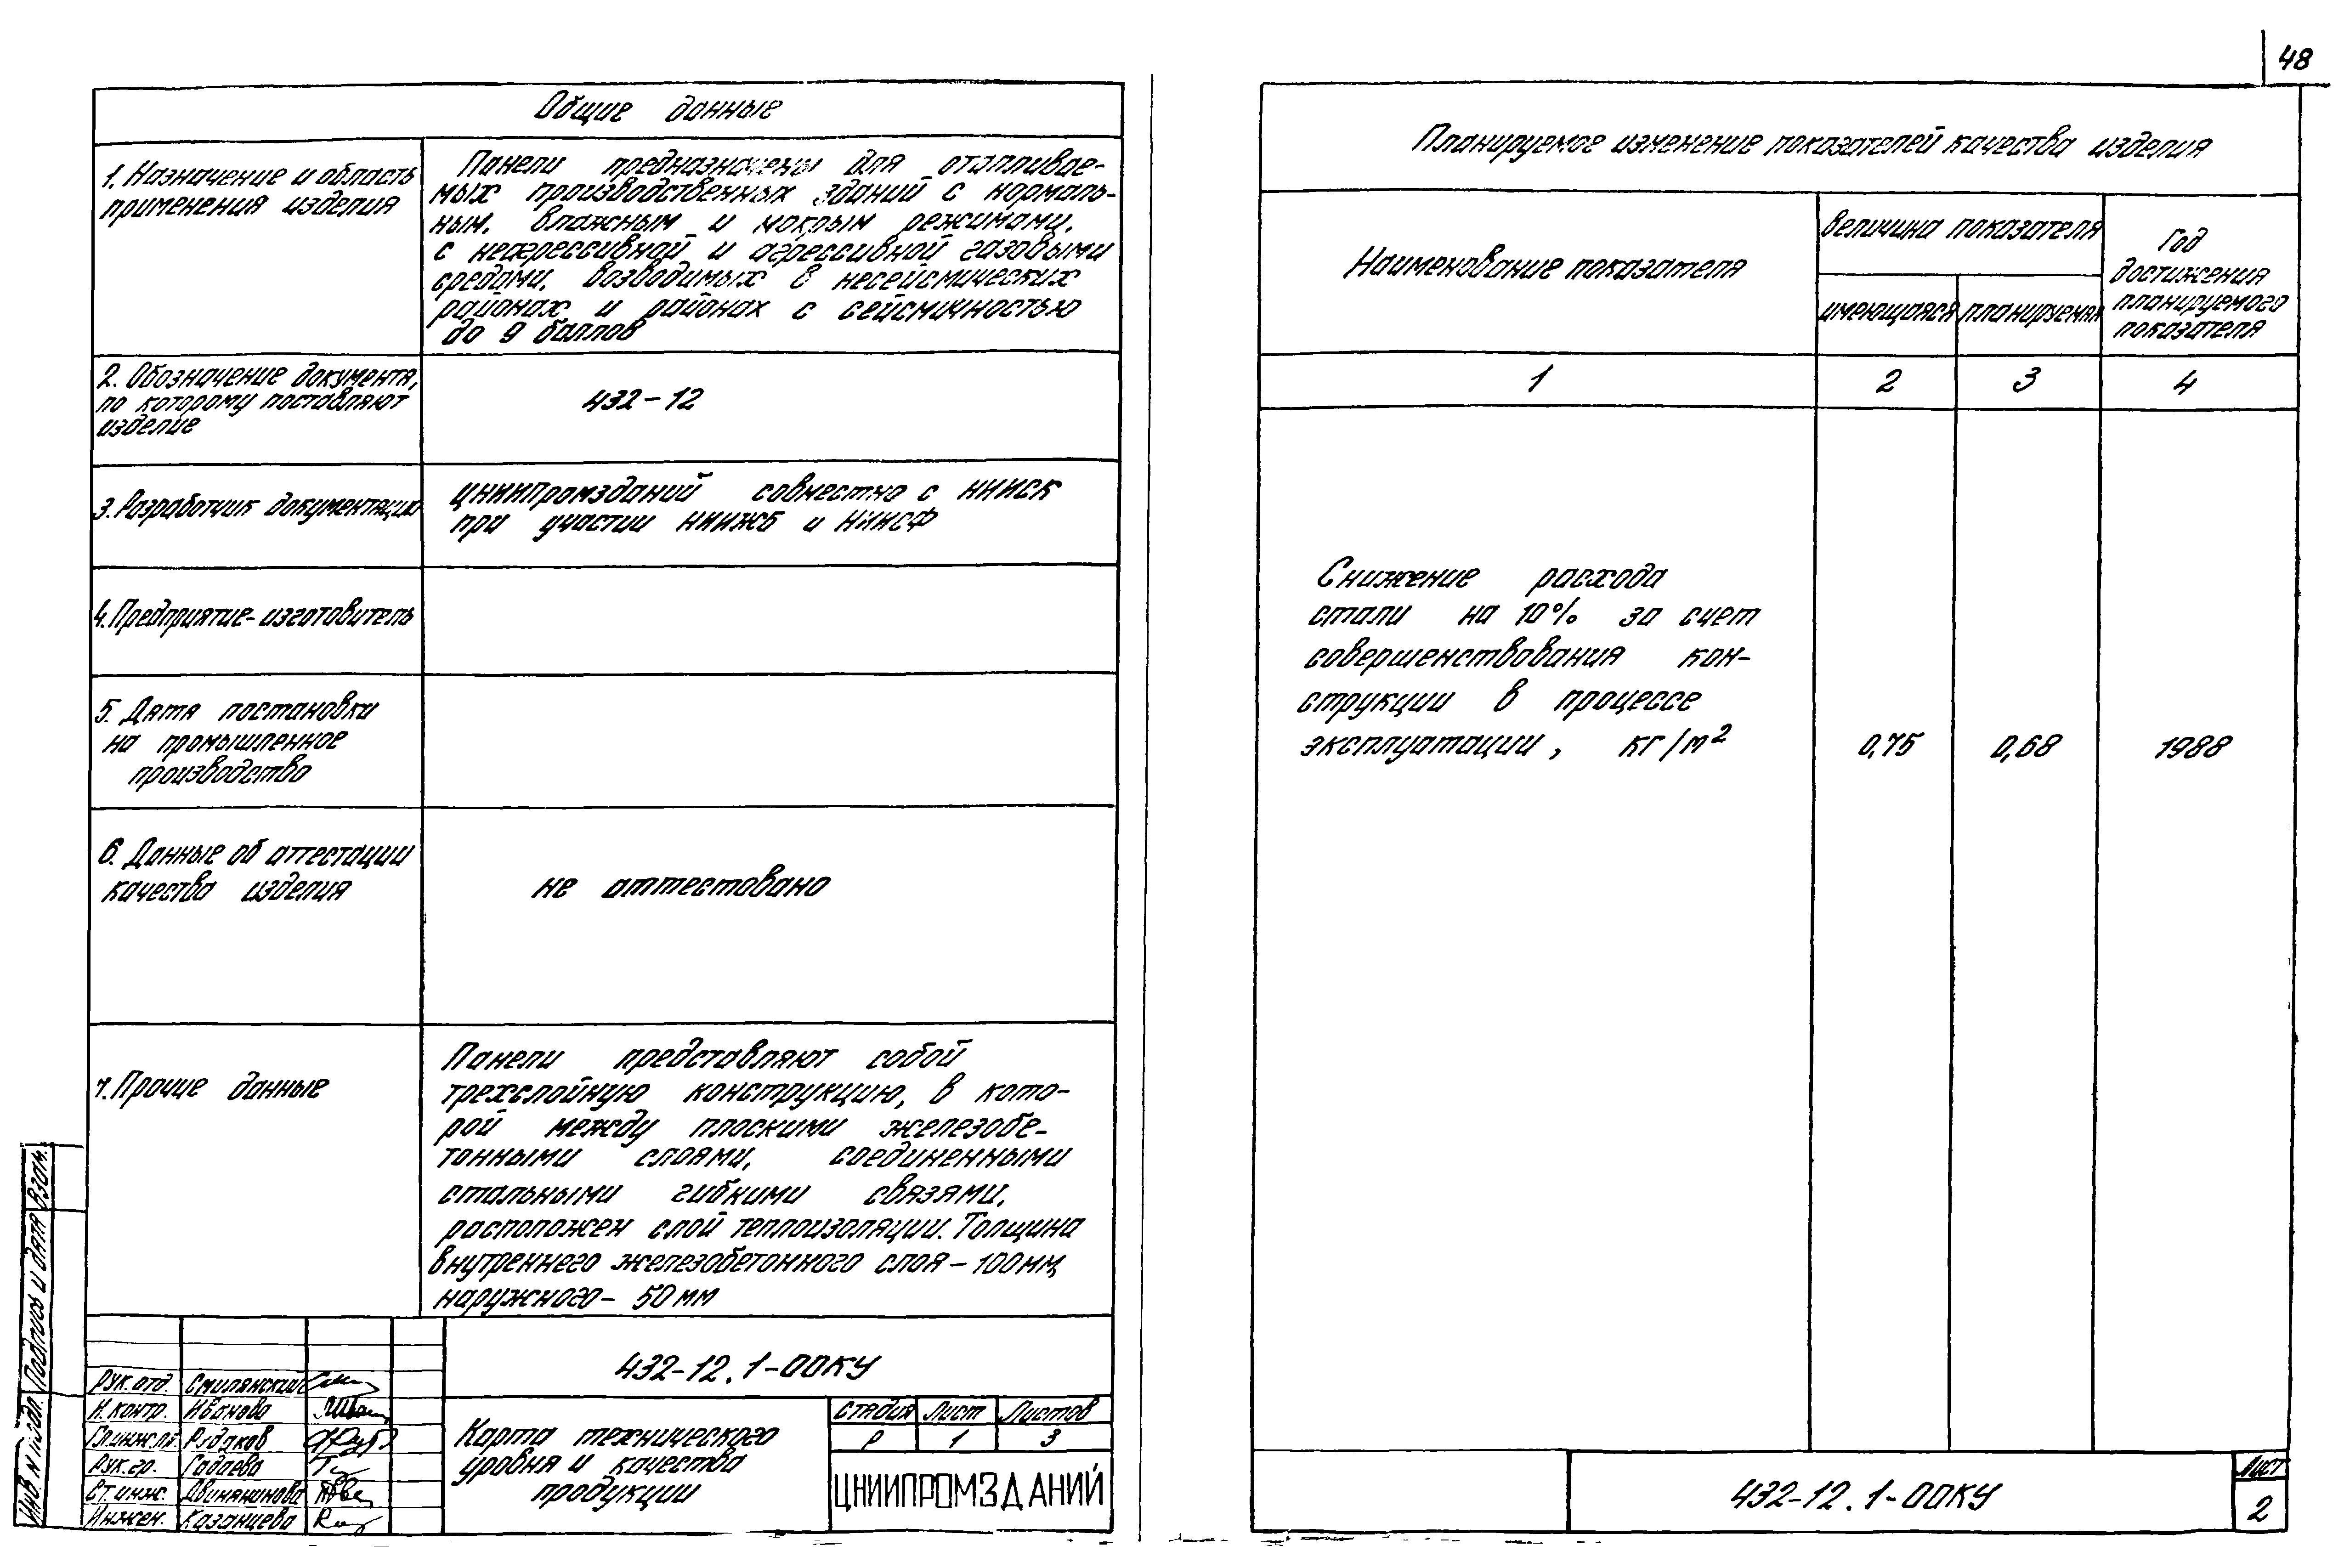 48
Общие данные
1. Назначение и область
применения изделия
Панели предназначены для отапливае-
мых производственных зданий с нормаль-
ным, влажным и мокрым режимами,
с неагрессивной и агрессивной газовыми
средами, возводимых в несейсмических
районах и районах с сейсмичностью
до 9 баллов
2. Обозначение документа,
по которому поставляют
изделие
432-12
3. Разработчик документации
ЦНИИпромзданий совместно с НИИСК
при участии НИИЖБ и НИИСФ
4. Предприятие-изготовитель
5. Дата постановки
на промышленное
производство
6. Данные об аттестации
качества изделия
не аттестовано
7. Прочие данные
Панели представляют собой
трехслойную конструкцию, в кото-
рой между плоскими железобе-
тонными слоями, соединенными
стальными гибкими связями,
расположен слой теплоизоляции. Толщина
внутреннего железобетонного слоя - 100мм,
наружного - 50мм
Взам.
Подпись и дата
Инв. N подл.
432-12.1-00КУ
Рук. отд. Смилянский
Н. контр. Иванова
Рук. гр. Годаева
Ст. инж.
Инжен. Казанцева
Карта технического
уровня и качества
продукции
Стадия Лист Листов
Р 1 3
ЦНИИПРОМЗДАНИЙ
Планируемое изменение показателей качества изделия
Наименование показателя
Величина показателя
имеющаяся планируемая
Год
достижения
планируемого
показателя
1 2 3 4
Снижение расхода
стали на 10% за счет
совершенствования кон-
струкции в процессе
эксплуатации, кг/м² 0,75 0,68 1988
432-12.1-00КУ
Лист
2